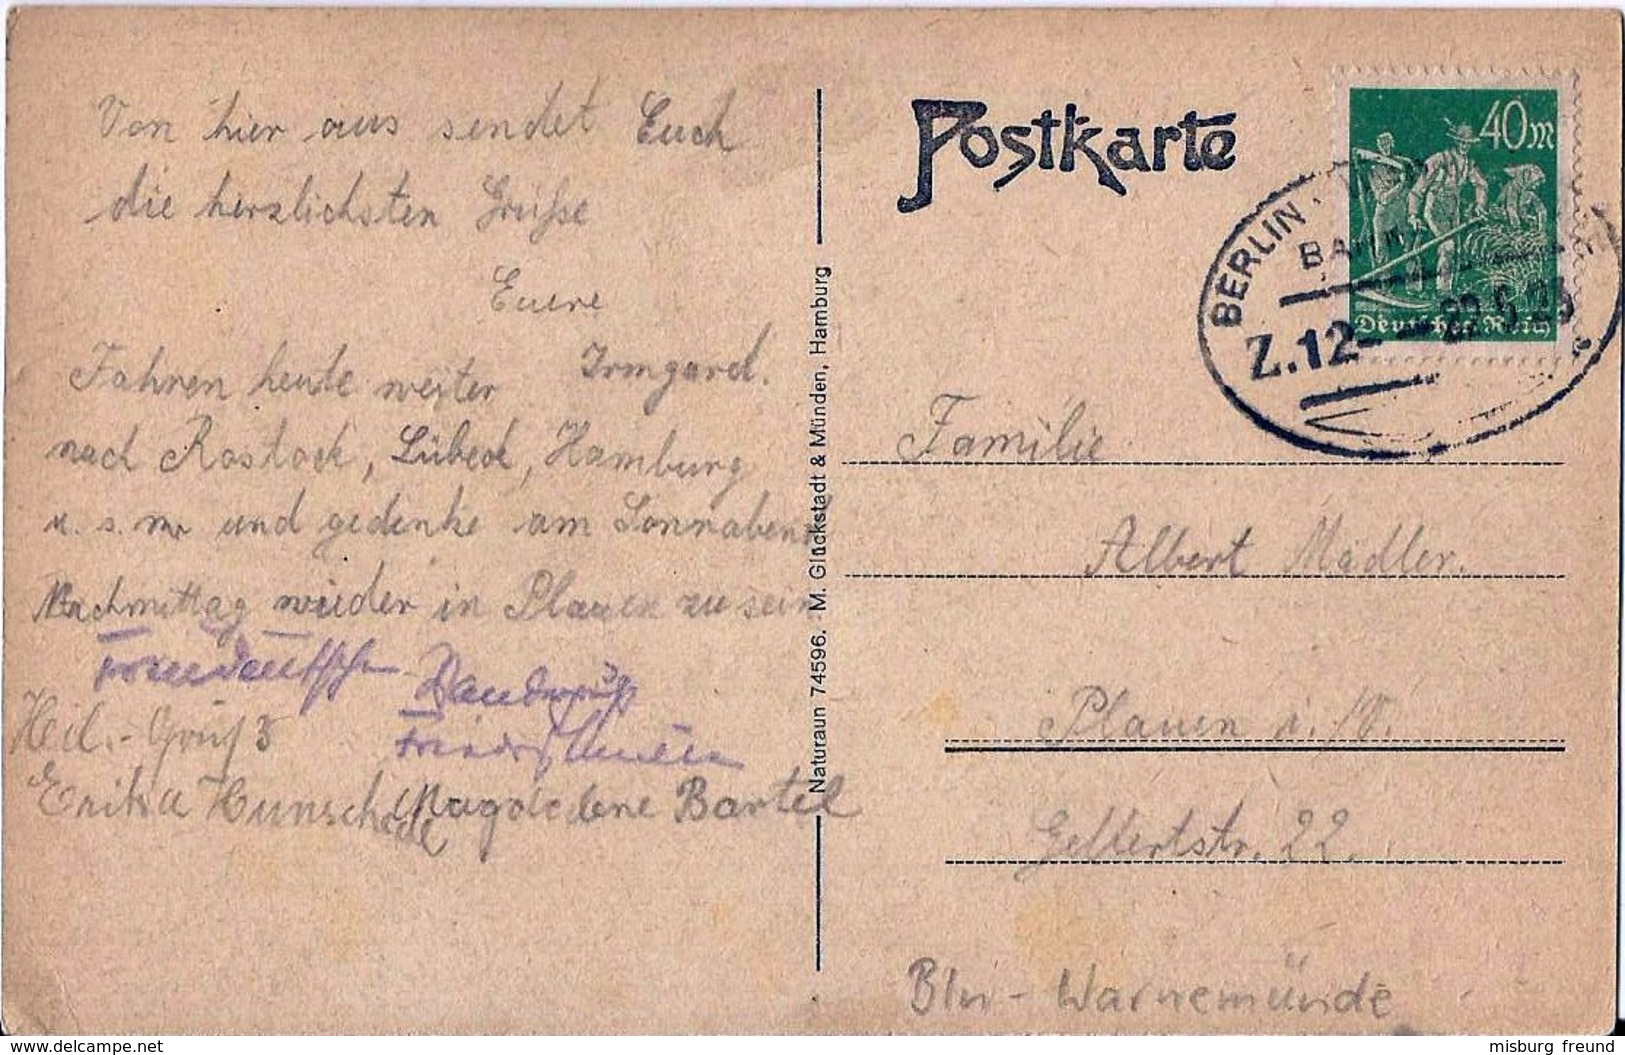 Von hier aus sendet Euch
die herzlichsten Grüße
Euere
Irmgard.
Fahren heute weiter
nach Rostock, Lübeck, Hamburg
u. s. w. und gedenke am Sonnabend
Nachmittag wieder in Plauen zu sein
Heil-Gruß
Erika Hunschede
Magdalene Bartel
Naturaun 74596. M. Glückstadt & Münden, Hamburg
Postkarte
40 M
Deutsches Reich
BERLIN
Z.12
22.6.23
Familie
Albert Mädler.
Plauen i. /V.
Gellertstr. 22.
Bln - Warnemünde
www.delcampe.net
misburg freund